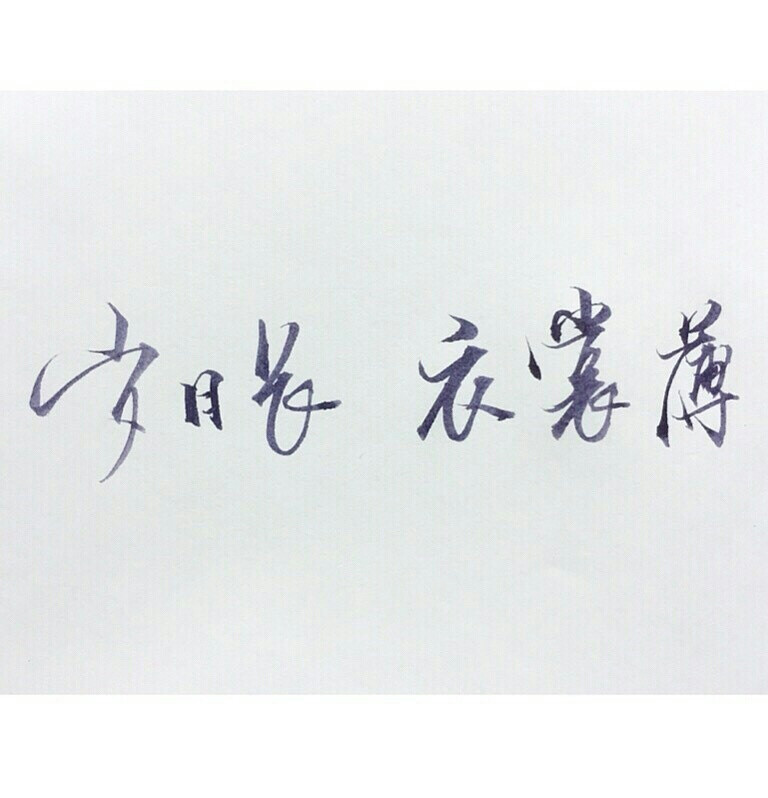 岁月长 衣裳薄